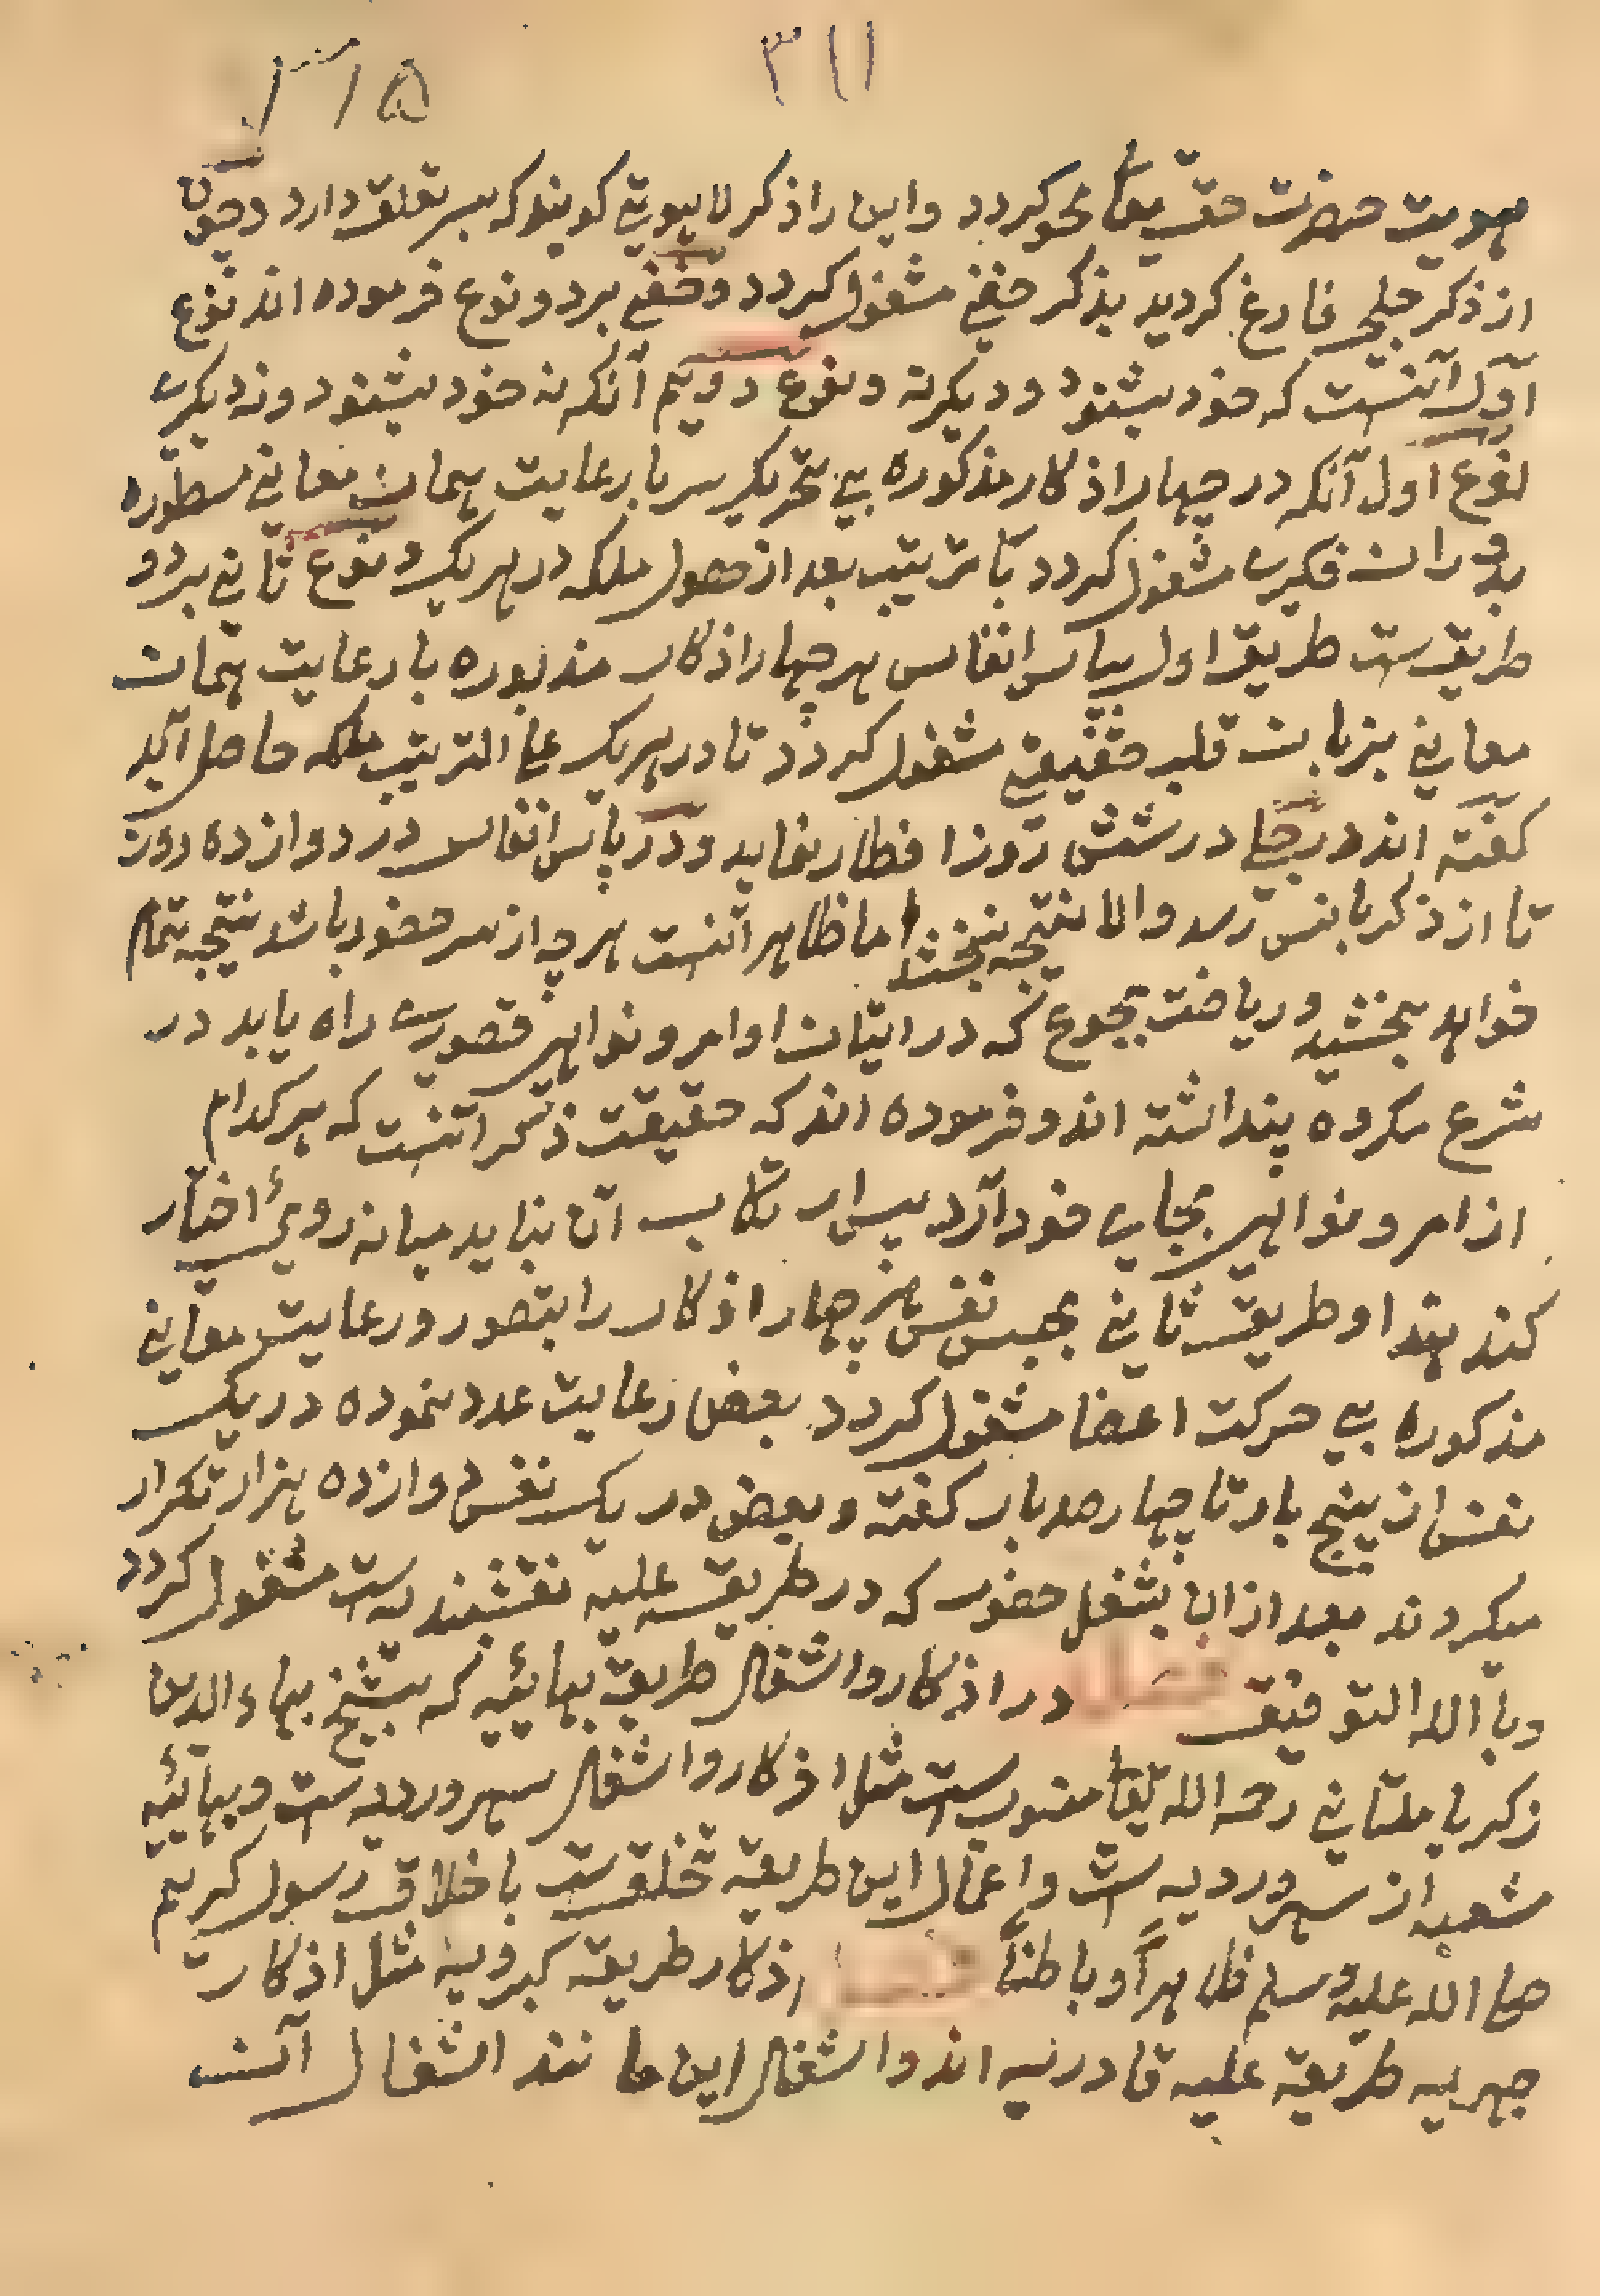 ٣١١
هویت حضرت حق تعالی محو کردد واین را ذکر لاهوتی کویند که بسر تعلق دارد وچون
از ذکر جلی فارغ کردید بذکر خفی مشغول کردد وخفی بر دو نوع فرموده اند نوع
اول آنست که خود بشنود و دیکر نه ونوع دویم آنکه نه خود بشنود ونه دیکرے
نوع اول آنکه در چهار اذکار مذکوره بی تحریک سر با رعایت همان معانی مسطوره
مشغول کردد بترتیب بعد از حصول ملکه در هر یک ونوع ثانی بر دو
طریق ست طریق اول بپاس انفاس هر چهار اذکار مذبوره با رعایت همان
معانی بزبان قلب حقیقی مشغول کردد تا در هر یک علی الترتیب ملکه حاصل آید
کفته اند در جلی در شش روز افطار نماید ودر پاس انفاس در دوازده روز
تا از ذکر بانس رسد والا نتیجه نبخشد اما ظاهر آنست هرچه از سر حضور باشد نتیجه تمام
خواهد بخشید وریاضت بجوع که در اتیان اوامر ونواهی قصورے راه یابد در
شرع مکروه پنداشته اند وفرموده اند که حقیقت ذکر آنست که هر کدام
از امر ونواهی بجاے خود آرد پس ارتکاب آن نباید میانه روی اختیار
کند بقدا وطریق ثانی بحبس نفس هر چهار اذکار را بتصور ورعایت معانی
مذکوره بی حرکت اعضا مشغول کردد بعض رعایت عدد نموده در یک
نفس از پنج بار تا چهار صد بار کفته وبعض در یک نفس دوازده هزار تکرار
میکردند بعد ازان بشغل حضور که در طریقه علیه نقشبندیه ست مشغول کردد
وبا الله التوفیق فصل در اذکار واشغال طریق بهائیه که بشیخ بهاء الدین
زکریا ملتانی رحمة الله تعالی منسوب ست مثل اذکار واشغال سهروردیه ست وبهائیه
شعبه از سهروردیه ست واعمال این طریقه تخلق ست باخلاق رسول کریم
صلی الله علیه وسلم ظاهراً وباطناً فصل اذکار طریقه کبرویه مثل اذکار
جهریه طریقه علیه قادریه اند واشغال این مانند اشغال آنست